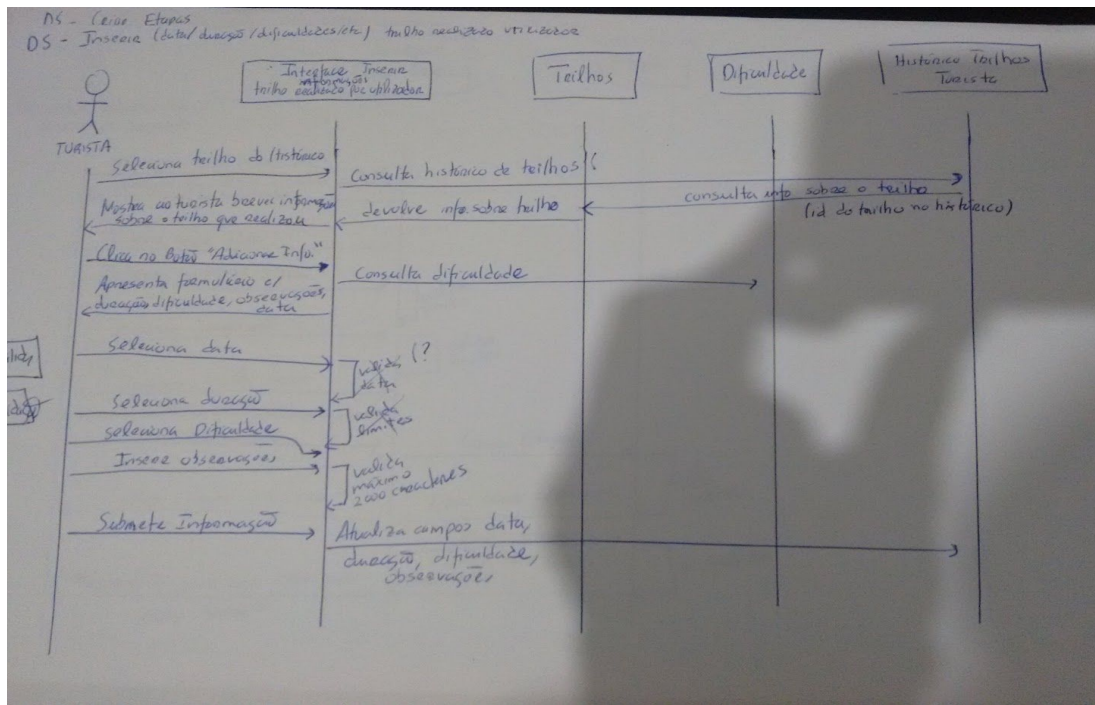 DS - Criar Etapas
DS - Inserir (data/duração/dificuldades/etc) trilho realizado utilizador
Interface Inserir
informações
trilho realizado por utilizador
Trilhos
Dificuldade
Histórico Trilhos
Turista
TURISTA
Seleciona trilho do Histórico
Consulta histórico de trilhos
consulta info sobre o trilho
(id do trilho no histórico)
devolve info sobre trilho
Mostra ao turista breve informação
sobre o trilho que realizou
Clica no Botão "Adicionar Info."
Consulta dificuldade
Apresenta formulário c/
duração, dificuldade, observações,
data
Seleciona data
valida (?
data
Seleciona duração
valida
limites
seleciona Dificuldade
Insere observações
valida
máximo
2000 caracteres
Submete Informação
Atualiza campos data,
duração, dificuldade,
observações